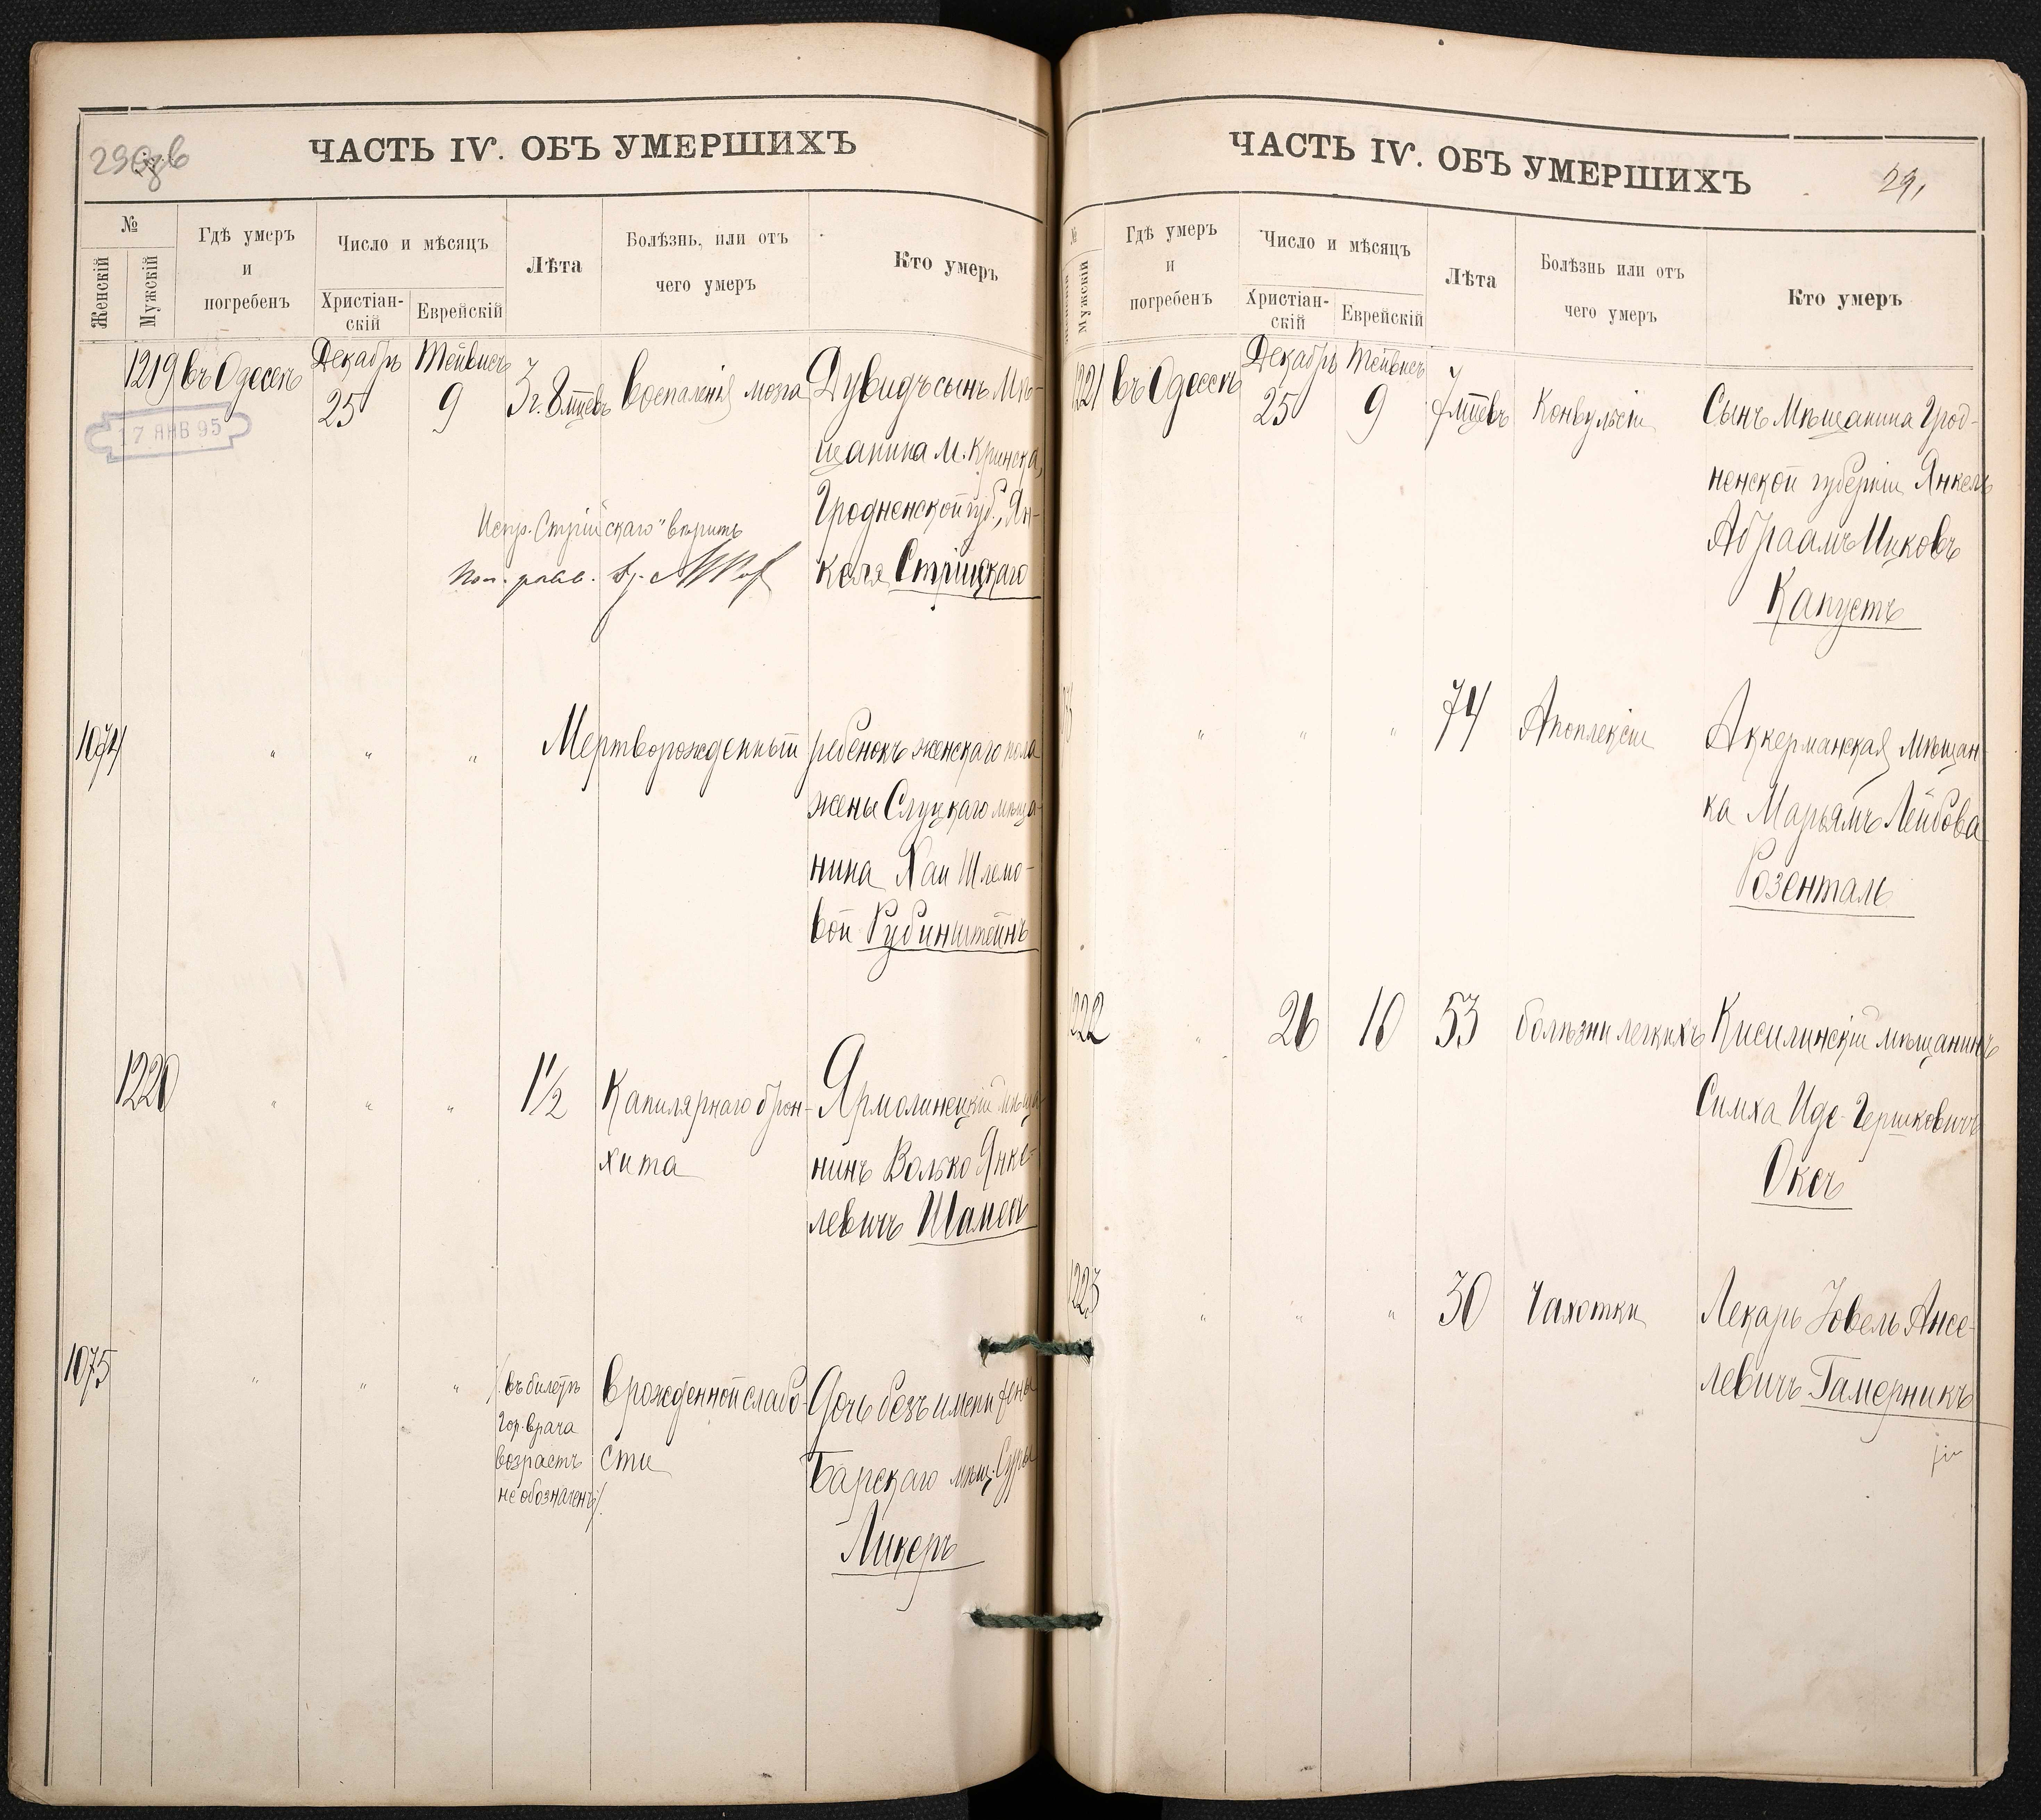 ЧАСТЬ IV. ОБЪ УМЕРШИХЪ
№
Женскій
Мужскій
Гдѣ умеръ
и
погребенъ
Число и мѣсяцъ
Христіан-
скій
Еврейскій
Лѣта
Болѣзнь, или отъ
чего умеръ
Кто умеръ
1219 въ Одессѣ Декабрь 25 Тейвисъ 9 3 г. 8 мцевъ Воспаленія мозга Дувидъ сынъ Мѣ-
щанина м. Кринска,
Гродненской губ., Ян-
келя Стріцкаго
Испр. "Стрійскаго" вѣрить
17 ЯНВ 95
1074 " " " Мертворожденный ребенокъ женскаго пола
жены Слуцкаго мѣща-
нина Хаи Шлемо-
вой Рубинштейнъ
1220 " " " 1½ Капилярнаго брон-
хита
Ярмолинецкій мѣща-
нинъ Волько Янке-
левичъ Шамесъ
1075 " " "
/. въ билетѣ
гор. врача
возрастъ
не обозначенъ /.
Врожденной слабо-
сти
Дочь безъ имени жены
Барскаго мѣщ. Суры
Ликеръ
ЧАСТЬ IV. ОБЪ УМЕРШИХЪ
29,
№
Мужскій
Гдѣ умеръ
и
погребенъ
Число и мѣсяцъ
Христіан-
скій
Еврейскій
Лѣта
Болѣзнь или отъ
чего умеръ
Кто умеръ
1221 въ Одессѣ Декабрь 25 Тейвисъ 9 7 мцевъ Конвульсіи Сынъ Мѣщанина Грод-
ненской губерніи Янкель
Абраамъ Ицковъ
Капустъ
" " " 74 Апоплексіи Аккерманская мѣщан-
ка Марьямъ Лейбова
Розенталь
1222 " 26 10 53 болѣзни легкихъ Кисилинскій мѣщанинъ
Симха Иде-Гершковичъ
Оксъ
1223 " " " 30 Чахотки Лекарь Іовель Ансе-
левичъ Гамерникъ